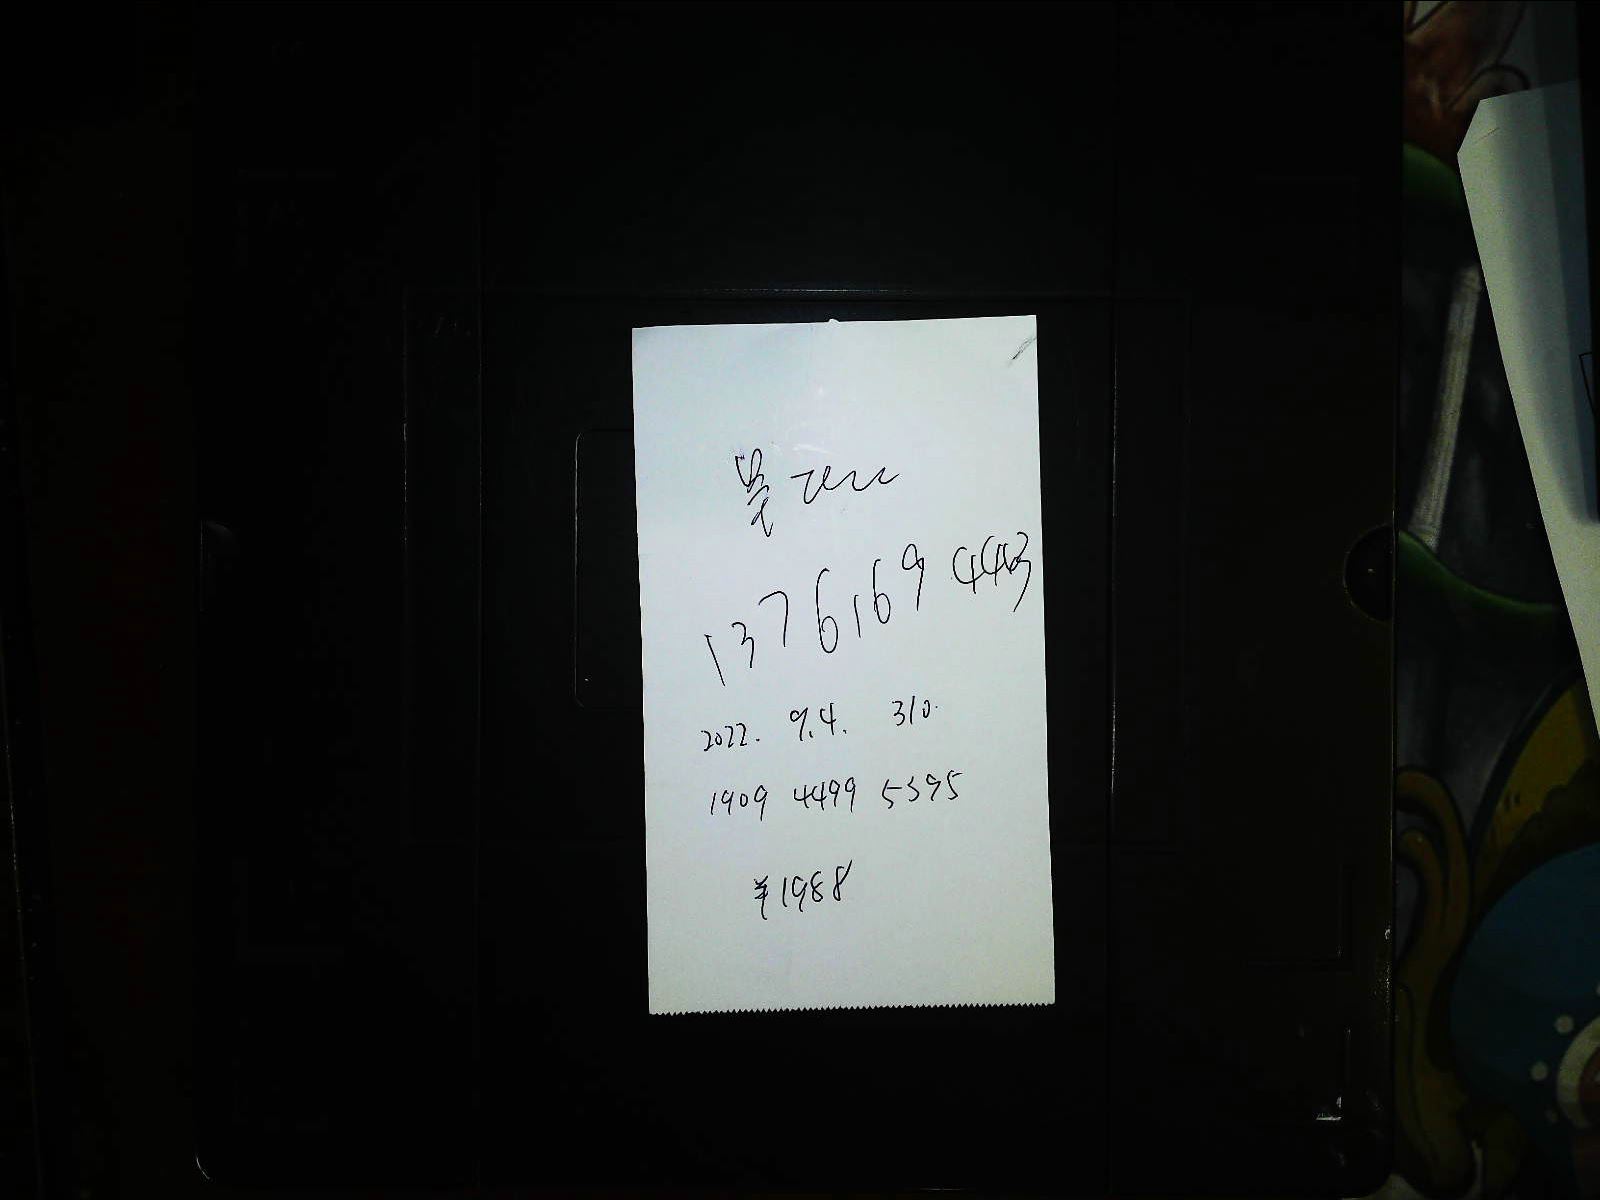 1376169 4443
2022. 9.4. 310.
1909 4499 5395
¥1988